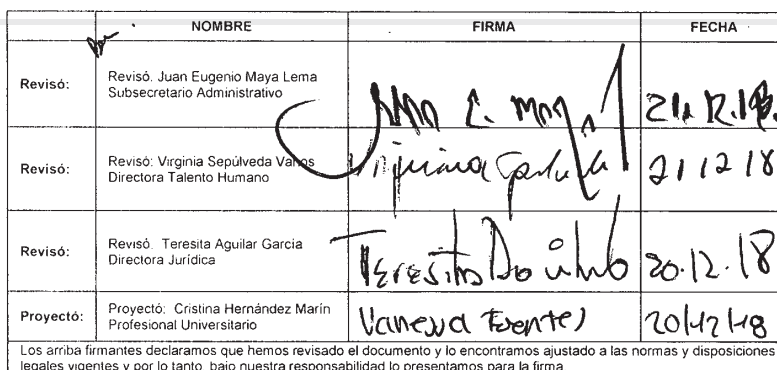 NOMBRE FIRMA FECHA
Revisó: Revisó. Juan Eugenio Maya Lema
Subsecretario Administrativo
Juan E. Maya 21.12.18.
Revisó: Revisó: Virginia Sepúlveda Vahos
Directora Talento Humano
Virginia 21 12 18
Revisó: Revisó. Teresita Aguilar García
Directora Jurídica
Teresita 20.12.18
Proyectó: Proyectó: Cristina Hernández Marín
Profesional Universitario
Vanessa Fuentes 20/12/18
Los arriba firmantes declaramos que hemos revisado el documento y lo encontramos ajustado a las normas y disposiciones
legales vigentes y por lo tanto, bajo nuestra responsabilidad lo presentamos para la firma.